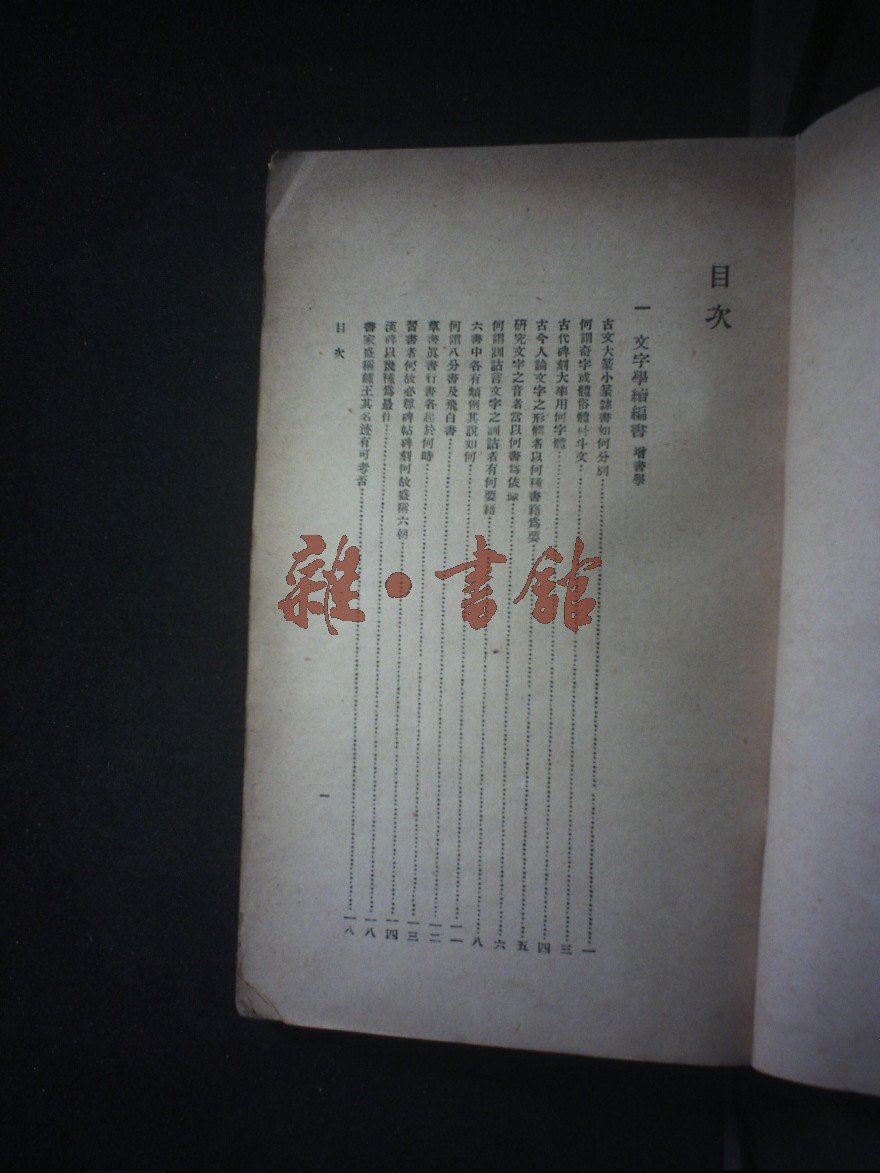 目次
一 文字學續編書 增書學
古文大篆小篆隸書如何分別……一
何謂奇字或體俗體科斗文……三
古代碑刻大率用何字體……四
古今人論文字之形體者以何種書籍爲要……五
研究文字之音者當以何書爲依據……六
何謂訓詁言文字之訓詁者有何要籍……八
六書中各有類例其說如何……一一
何謂八分書及飛白書……一二
草書眞書行書各起於何時……一三
習書者何故必尊碑帖碑刻何故盛稱六朝……一四
漢碑以幾種爲最佳……一八
書家盛稱鍾王其名迹有可考否……一八
目次
一
雜·書館